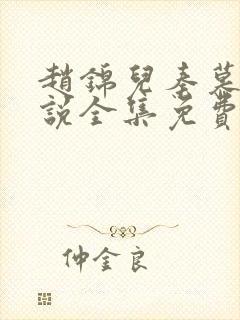 趙錦兒秦慕
說全集免費
仲金良